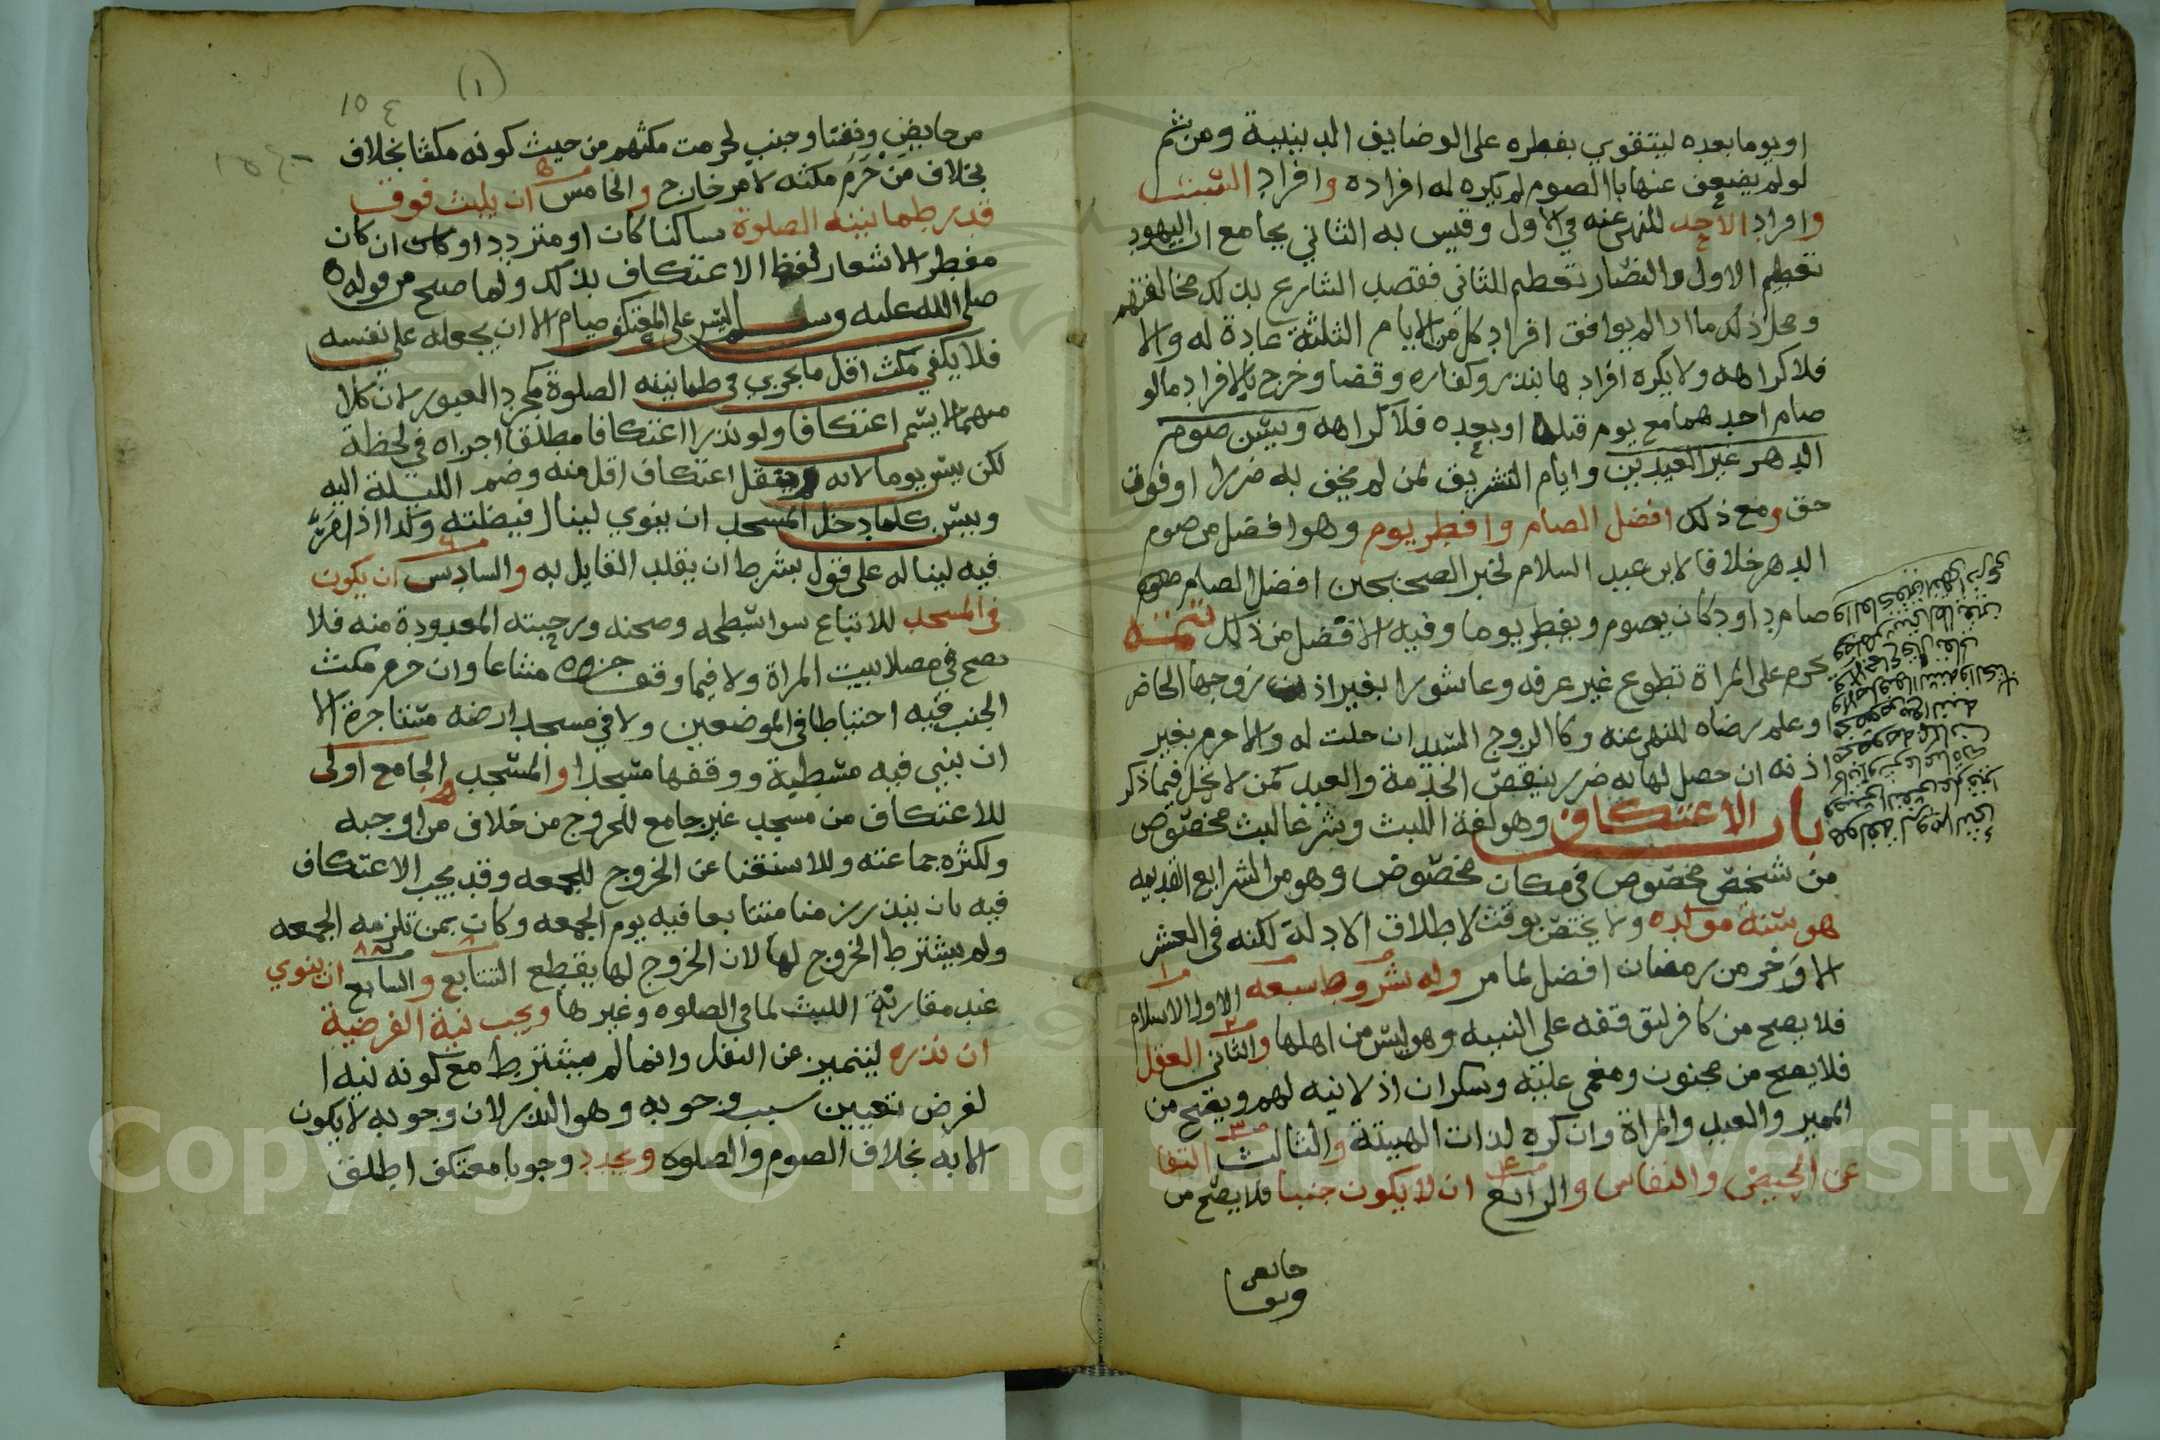 او يوما بعده ليتقوي بفطره على الوضايف الدينية ومن ثم
لو لم يضعف عنها با الصوم لم يكره له افراده وافراد السبت
وافراد الاحد للنهي عنه في الاول وقيس به الثاني بجامع ان اليهود
تعظم الاول والنصار تعظم الثاني فقصد الشارع بذلك مخالفتهم
ومحل ذلك ما اذا لم يوافق افراد كل من الايام الثلثة عادة له والا
فلا كراهه ولا يكره افرادها بنذر وكفاره وقضا وخرج بالافراد ما لو
صام احدهما مع يوم قبله او بعده فلا كراهه ويسن صوم
الدهر غير العيدين وايام التشريق لمن لم يخف به ضررا او فوت
حق ومع ذلك افضل الصام وافطر يوم وهو افضل من صوم
الدهر خلافا لابن عبد السلام لخبر الصحيحين افضل الصام صوم
صام داود كان يصوم ويفطر يوما وفيه لا افضل من ذلك تتمه
يحرم على المراة تطوع غير عرفه وعاشورا بغير اذن زوجها الحاضر
او علم رضاه للنهي عنه وكا الزوج السيد ان حلت له والا حرم بغير
اذنه ان حصل لها به ضرر ينقص الخدمة والعبد كمن لا تحل فيما ذكر
باب الاعتكاف وهو لغة اللبث وشرعا لبث مخصوص
من شخص مخصوص في مكان مخصوص وهو من الشرايع القديمه
هو سنة موكده ولا يختص بوقت لاطلاق الادلة لكنه في العشر
الاوخر من رمضان افضل لما مر وله شروط سبعه الاول الاسلام
فلا يصح من كافر لتوقفه على النيه وهو ليس من اهلها والثاني العقل
فلا يصح من مجنون ومغمى عليه وسكران اذ لا نيه لهم ويصح من
المميز والعبد والمراة وان كره لذات الهيئة والثالث النقا
عن الحيض والنفاس والرابع ان لا يكون جنبا فلا يصح من
حايض
ونفسا
(١)
١٥٤
من حايض ونفسا وجنب لحرمت مكثهم من حيث كونه مكثا بخلاف
بخلاف من حرم مكثه لامر خارج والخامس ان يلبث فوق
قدر طمانينه الصلوة ساكنا كان او متردد او كان ان كان
مفطر الاشعار لفظ الاعتكاف بذلك ولما صح من قوله
صلى الله عليه وسلم ليس على المعتكف صيام الا ان يجعله على نفسه
فلا يكفي مكث اقل ما يجزي في طمانينه الصلوة كمجرد العبور لان كلا
منهما لا يسم اعتكافا ولو نذر اعتكافا مطلقا اجزاه في لحظة
لكن يسن يوما لانه لم ينقل اعتكاف اقل منه وضم الليلة اليه
ويسن كلما دخل المسجد ان ينوي لينال فيضلته وكذا اذا مر
فيه ليناله على قول بشرط ان يقلد القايل به والسادس ان يكون
في المسجد للاتباع سوا سطحه وصحنه ورحبته المعدودة منه فلا
يصح في مصلا بيت المراة ولا فيما وقف جزوه مشاعا وان حرم مكث
الجنب فيه احتياطا في الموضعين ولا في مسجد ارضه مستاجرة الا
ان بني فيه مسطبة ووقفها مسجدا والمسجد الجامع اولى
للاعتكاف من مسجد غير جامع للخروج من خلاف من اوجبه
ولكثره جماعته وللاستغنا عن الخروج للجمعه وقد يجب الاعتكاف
فيه بان ينذر زمنا متتابعا فيه يوم الجمعه وكان ممن تلزمه الجمعه
ولم يشترط الخروج لها لان الخروج لها يقطع التتابع والسابع ان ينوي
عند مقارنة اللبث لما في الصلوه وغيرها ويجب نية الفرضية
ان نذره ليتميز عن النفل وانما لم يشترط مع كونه نيه ا
لفرض تعيين سبب وجوبه وهو النذر لان وجوبه لا يكون
الا به بخلاف الصوم والصلوه ويجدد وجوبا معتكف اطلق
Copyright © King Saud University